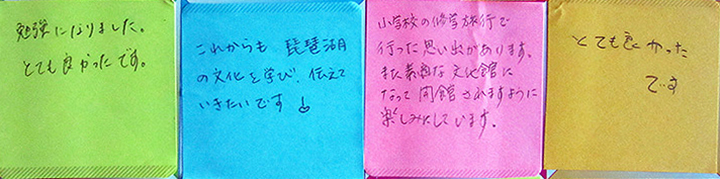 勉強になりました。
とても良かったです。
これからも 琵琶湖
の文化を学び、伝えて
いきたいです
小学校の修学旅行で
行った思い出があります。
また素敵な文化館に
なって開館されますように
楽しみにしています。
とても良かった
です